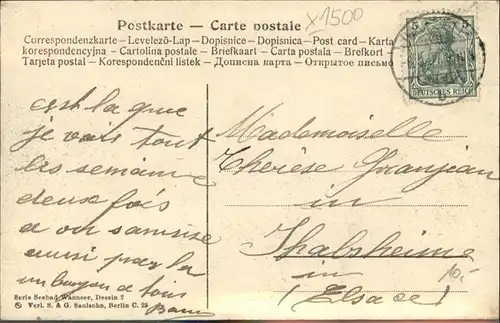 Postkarte — Carte postale
x1500
Correspondenzkarte - Levelező-Lap - Dopisnice - Dopisnica - Post card - Karta
korespondencyjna - Cartolina postale - Briefkaart - Carta postala - Brefkort -
Tarjeta postal - Korespondenční listek - Дописна карта - Открытое письмо
5 5
DEUTSCHES REICH
est la que
je vais tout
les semaine
deux fois
a on
aussi par la
un de fois
Mademoiselle
Thérèse Granjean
in
Thalsheime
in
(Elsace)
10.-
Serie Seebad Wannsee, Dessin 7
Verl. S. & G. Saulsohn, Berlin C. 25